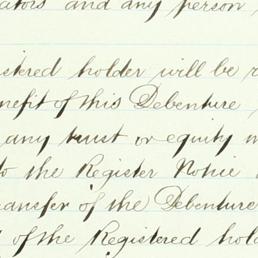 ators and any person
istered holder will be r
nefit of this Debenture
any trust or equity
to the Register Notice
ransfer of the Debenture
of the Registered hold